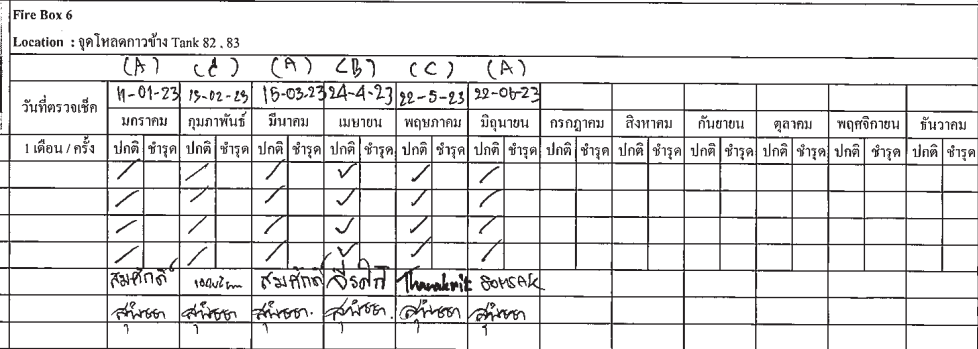 Fire Box 6
Location : จุดโหลดกาวข้าง Tank 82 , 83
(A) (C) (A) (B) (C) (A)
วันที่ตรวจเช็ค 11-01-23 15-02-23 15-03-23 24-4-23 22-5-23 22-06-23
มกราคม กุมภาพันธ์ มีนาคม เมษายน พฤษภาคม มิถุนายน กรกฎาคม สิงหาคม กันยายน ตุลาคม พฤศจิกายน ธันวาคม
1 เดือน / ครั้ง ปกติ ชำรุด ปกติ ชำรุด ปกติ ชำรุด ปกติ ชำรุด ปกติ ชำรุด ปกติ ชำรุด ปกติ ชำรุด ปกติ ชำรุด ปกติ ชำรุด ปกติ ชำรุด ปกติ ชำรุด ปกติ ชำรุด
/ / / ✓ ✓ /
/ / / ✓ ✓ /
/ / / ✓ ✓ /
/ / / ✓ ✓ /
สมศักดิ์ สมศักดิ์ Thanakrit SOMSAK